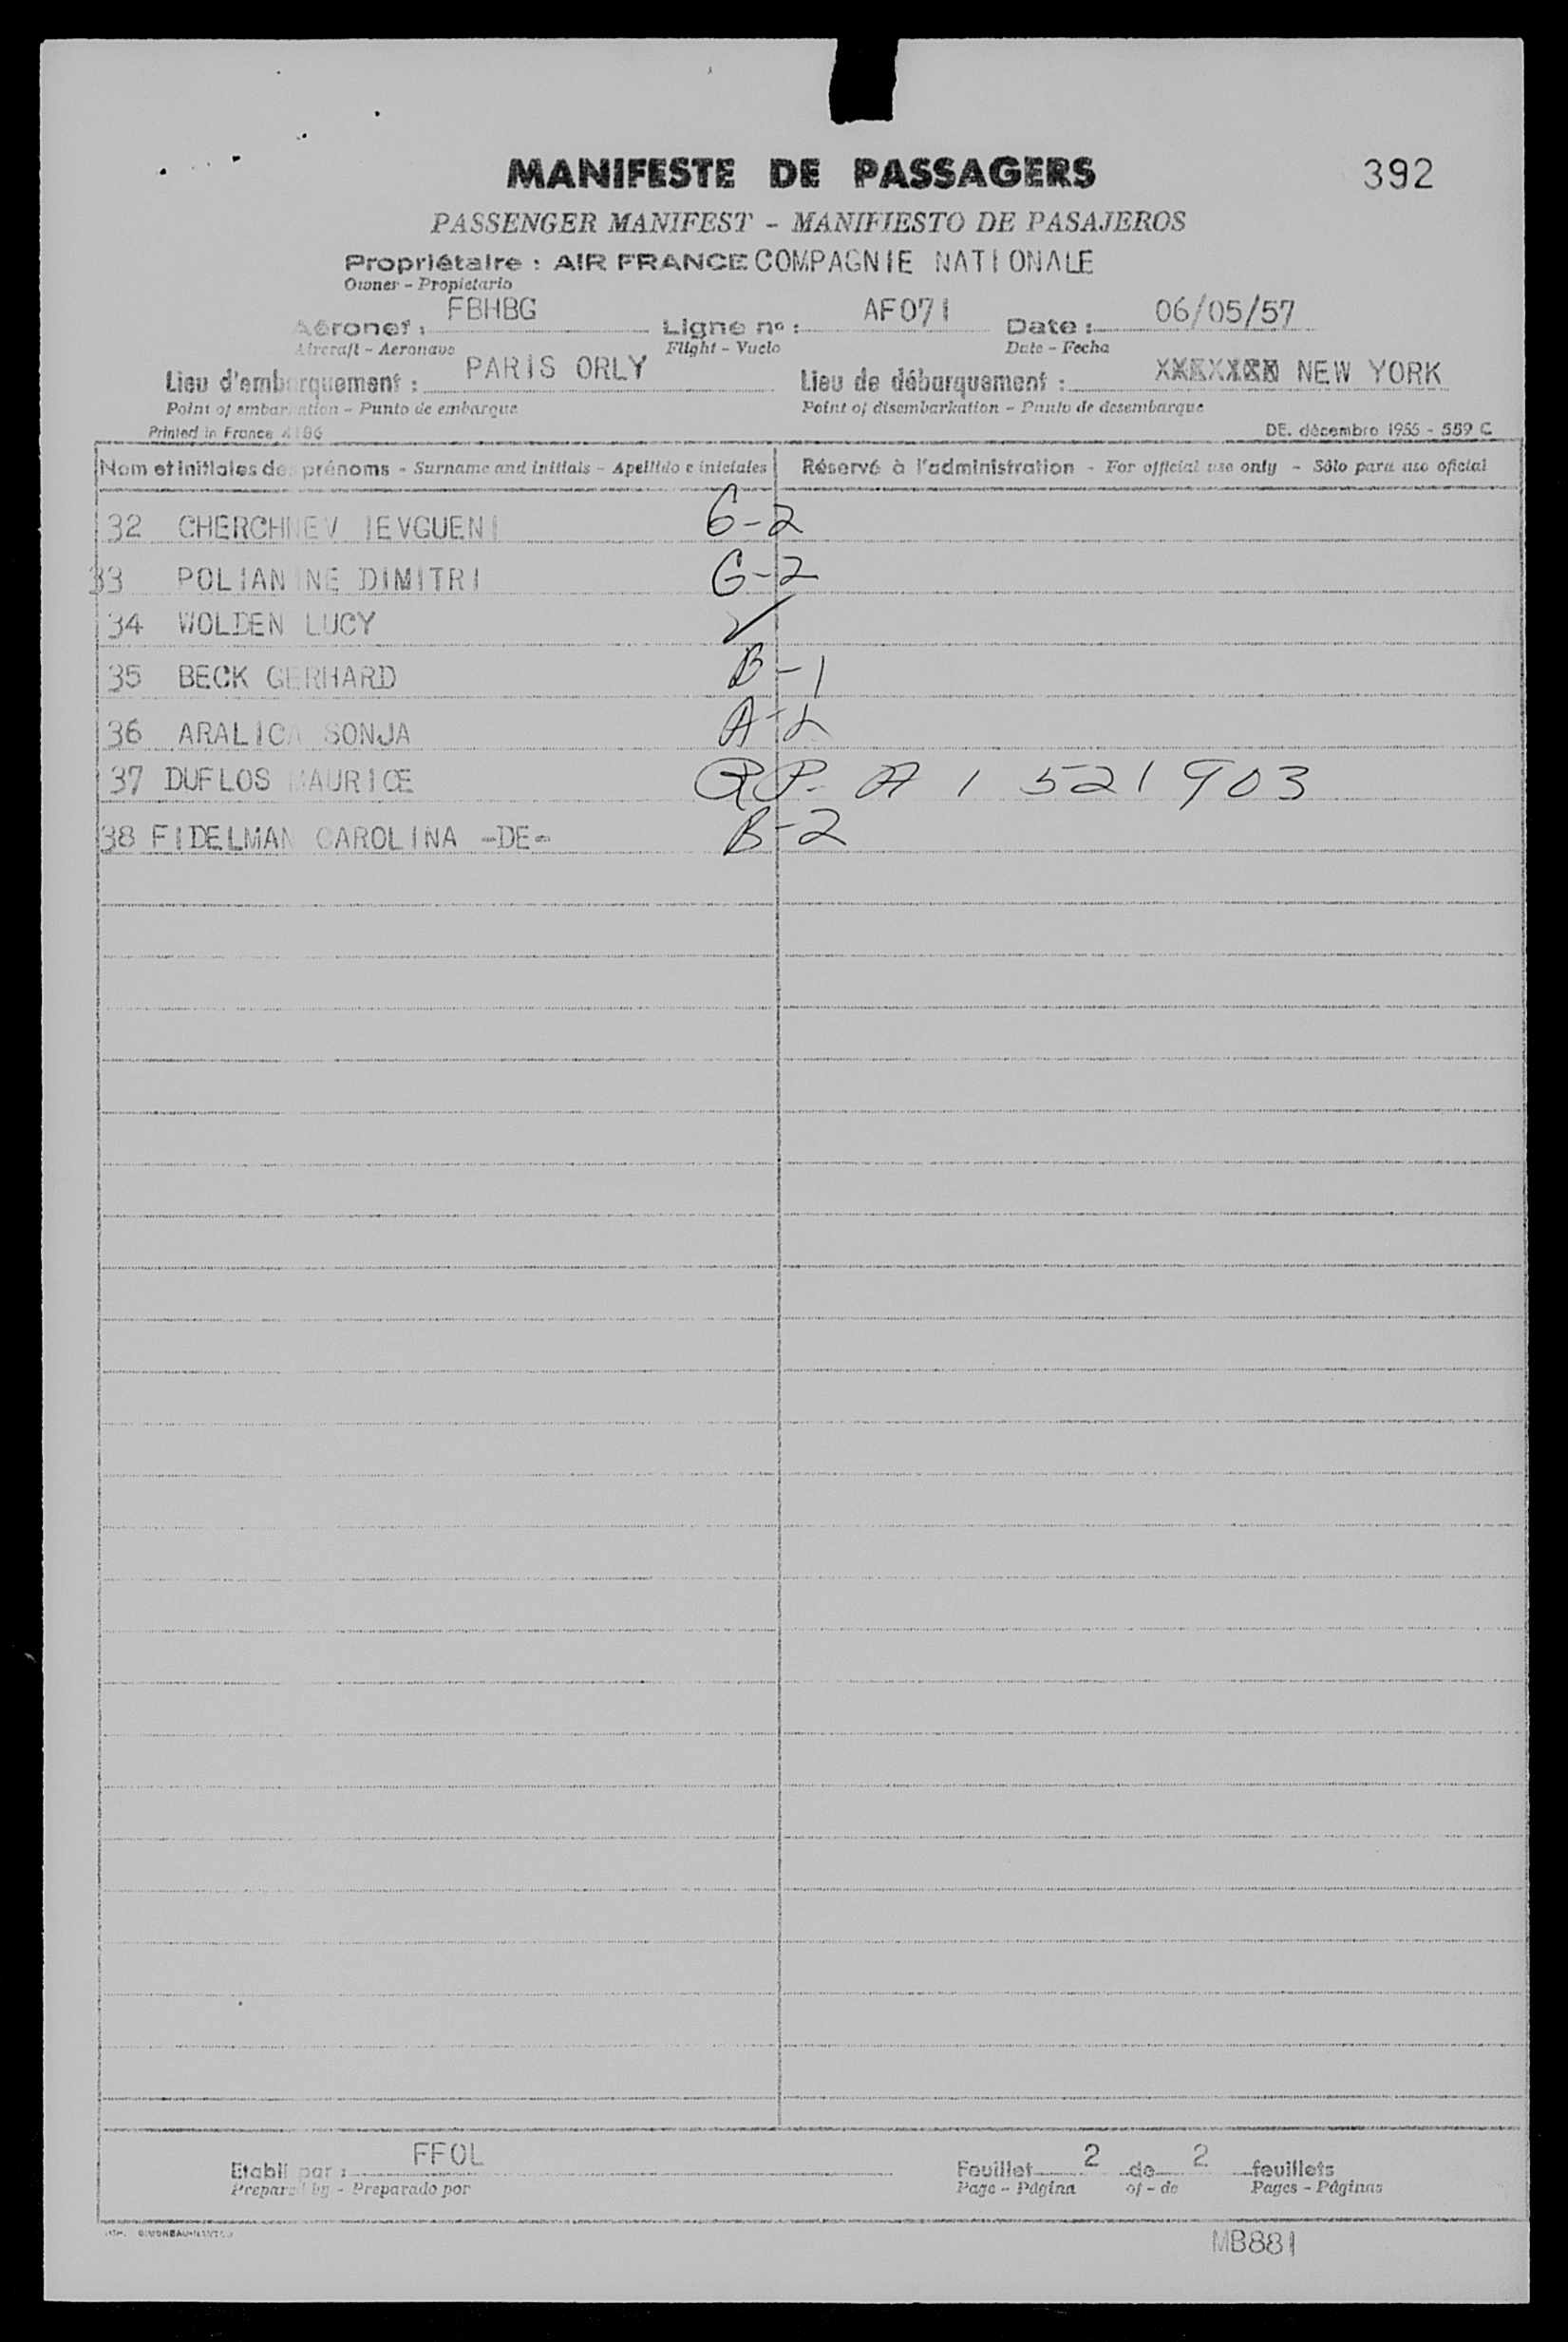 MANIFESTE DE PASSAGERS 392
PASSENGER MANIFEST - MANIFIESTO DE PASAJEROS
Propriétaire : AIR FRANCE COMPAGNIE NATIONALE
Owner - Propietario
Aéronef : FBHBG Ligne nº : AF071 Date : 06/05/57
Aircraft - Aeronave Flight - Vuelo Date - Fecha
Lieu d'embarquement : PARIS ORLY Lieu de débarquement : NEW YORK
Point of embarkation - Punto de embarque Point of disembarkation - Punto de desembarque
Printed in France 4186 DE. décembre 1955 - 559 C
Nom et initiales des prénoms - Surname and initials - Apellido e iniciales Réservé à l'administration - For official use only - Sólo para uso oficial
32 CHERCHNEV IEVGUENI G-2
33 POLIANINE DIMITRI G-2
34 WOLDEN LUCY ✓
35 BECK GERHARD B-1
36 ARALICA SONJA A-2
37 DUFLOS MAURICE RP. A 1 521 903
38 FIDELMAN CAROLINA -DE- B-2
Etabli par : FFOL Feuillet 2 de 2 feuillets
Prepared by - Preparado por Page - Página of - de Pages - Páginas
MB881